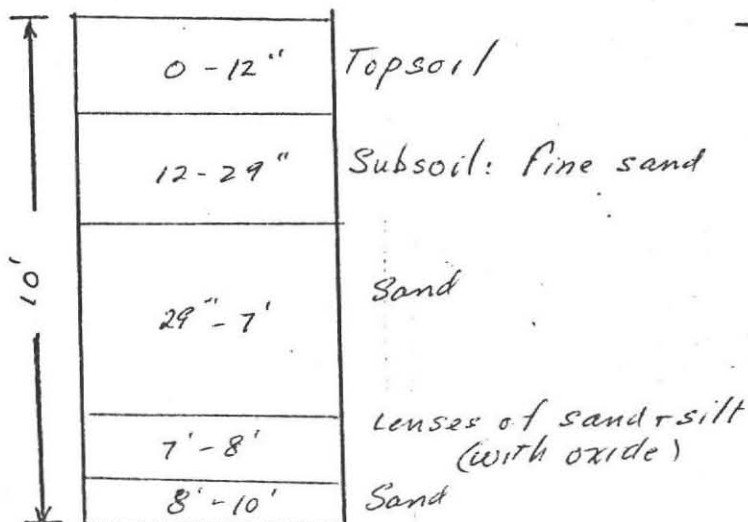 0 - 12" Topsoil
12 - 29" Subsoil: fine sand
10'
29" - 7' Sand
7' - 8' Lenses of sand + silt
(with oxide)
8' - 10' Sand